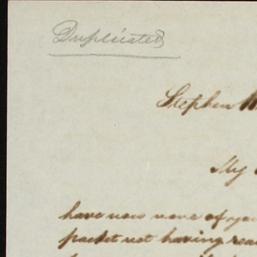 Duplicated
Stephen
My
have now none of
packet not having